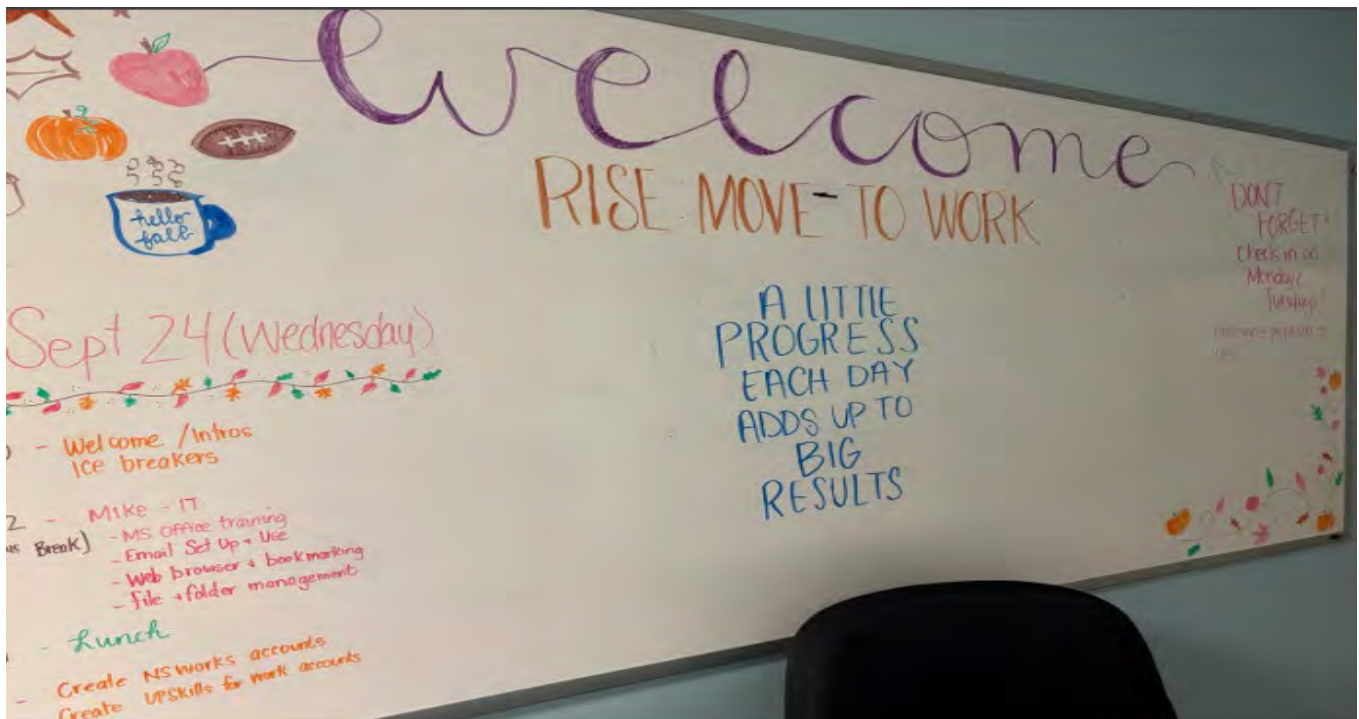 welcome
RISE MOVE-TO WORK
hello
fall
Sept 24 (Wednesday)
- Welcome / Intros
Ice breakers
2 - Mike - IT
Break)
- MS Office training
- Email Set Up + Use
- Web browser + bookmarking
- file + folder management
- Lunch
- Create NSWorks accounts
Create UPSkills for work accounts
A LITTLE
PROGRESS
EACH DAY
ADDS UP TO
BIG
RESULTS
DON'T
FORGET!
Check in on
Monday/
Tuesday!